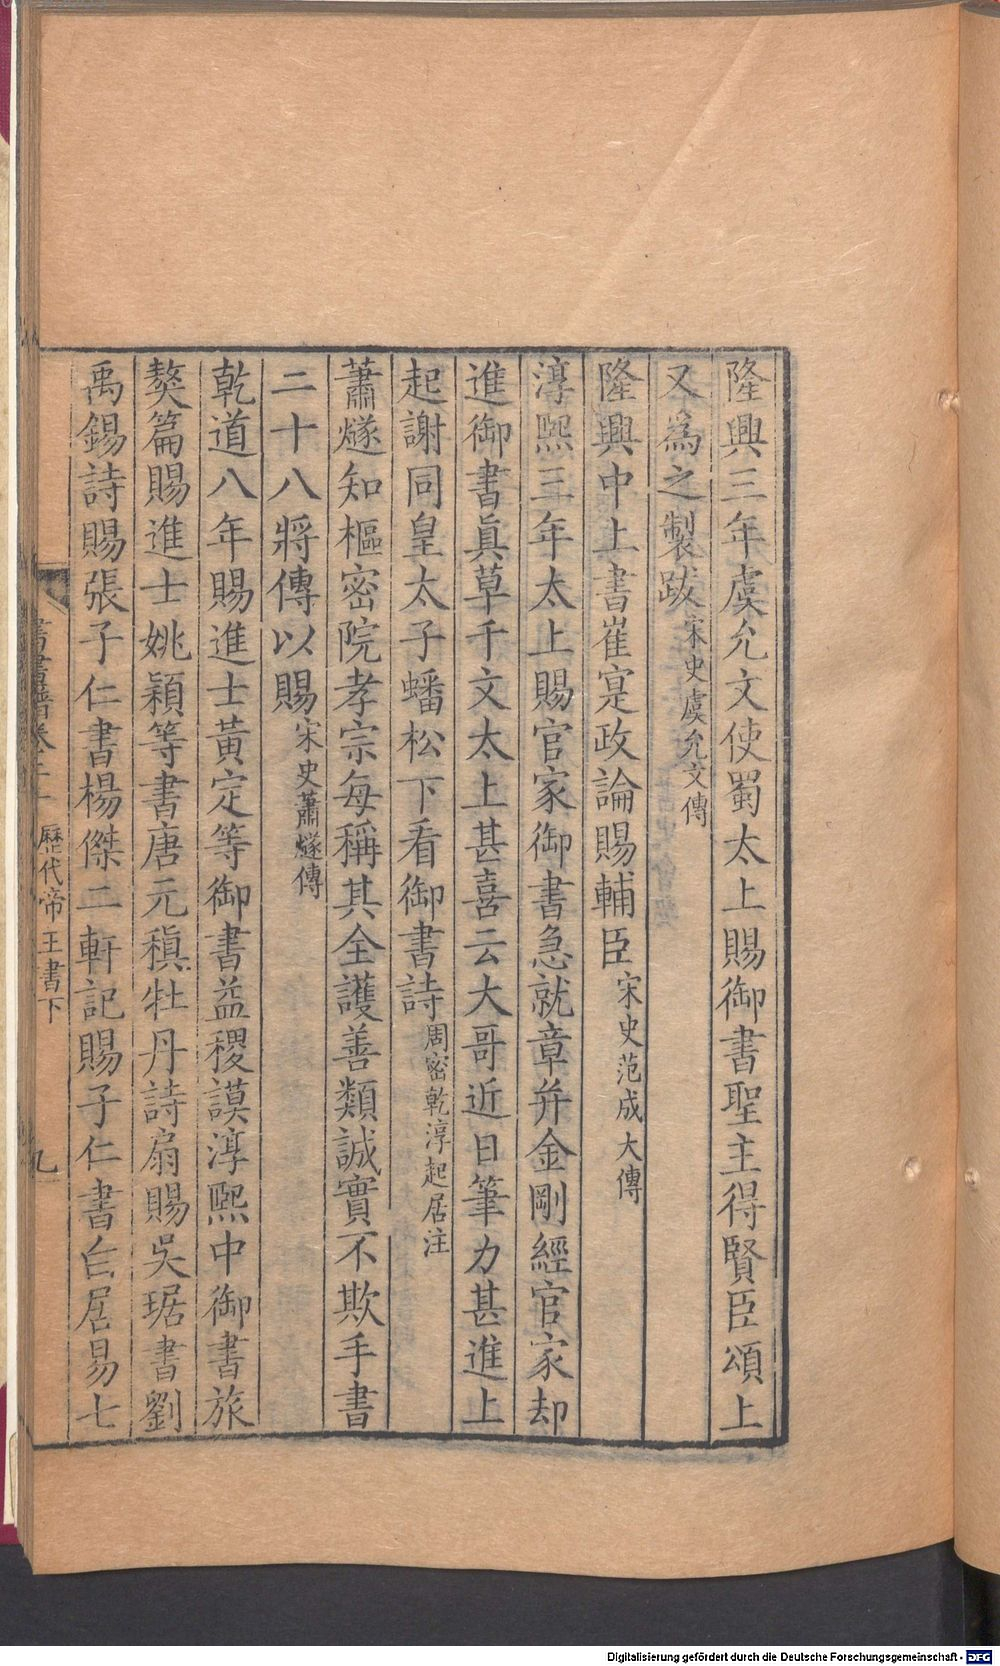 隆興三年虞允文使蜀太上賜御書聖主得賢臣頌上
又爲之製跋宋史虞允文傳
隆興中上書崔寔政論賜輔臣宋史范成大傳
淳熙三年太上賜官家御書急就章并金剛經官家却
進御書眞草千文太上甚喜云大哥近日筆力甚進上
起謝同皇太子蟠松下看御書詩周密乾淳起居注
蕭燧知樞密院孝宗每稱其全護善類誠實不欺手書
二十八將傳以賜宋史蕭燧傳
乾道八年賜進士黃定等御書益稷謨淳熙中御書旅
獒篇賜進士姚穎等書唐元稹牡丹詩扇賜吳琚書劉
禹錫詩賜張子仁書楊傑二軒記賜子仁書白居易七
歷代帝王書下
九
Digitalisierung gefördert durch die Deutsche Forschungsgemeinschaft - DFG